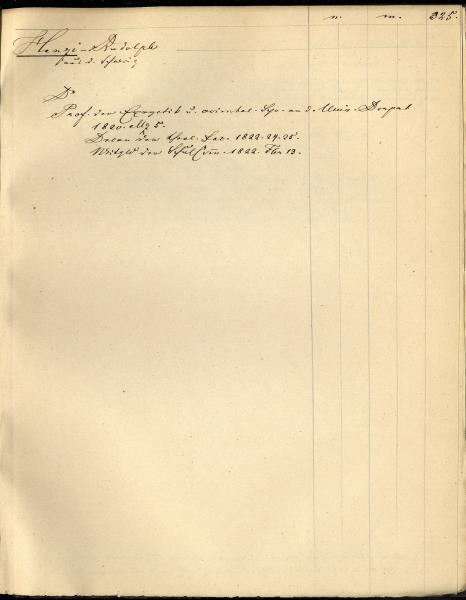 n. m. 325.
Henzi, Rudolph
aus d. Schweiz
Dr
Prof. der Exegetik u. oriental. Spr. an d. Univ. Dorpat
1820. Mz 5.
Decan der theol. Fac. 1822. 24. 25.
Mitgld der Schul Comm. 1822. Fbr 13.